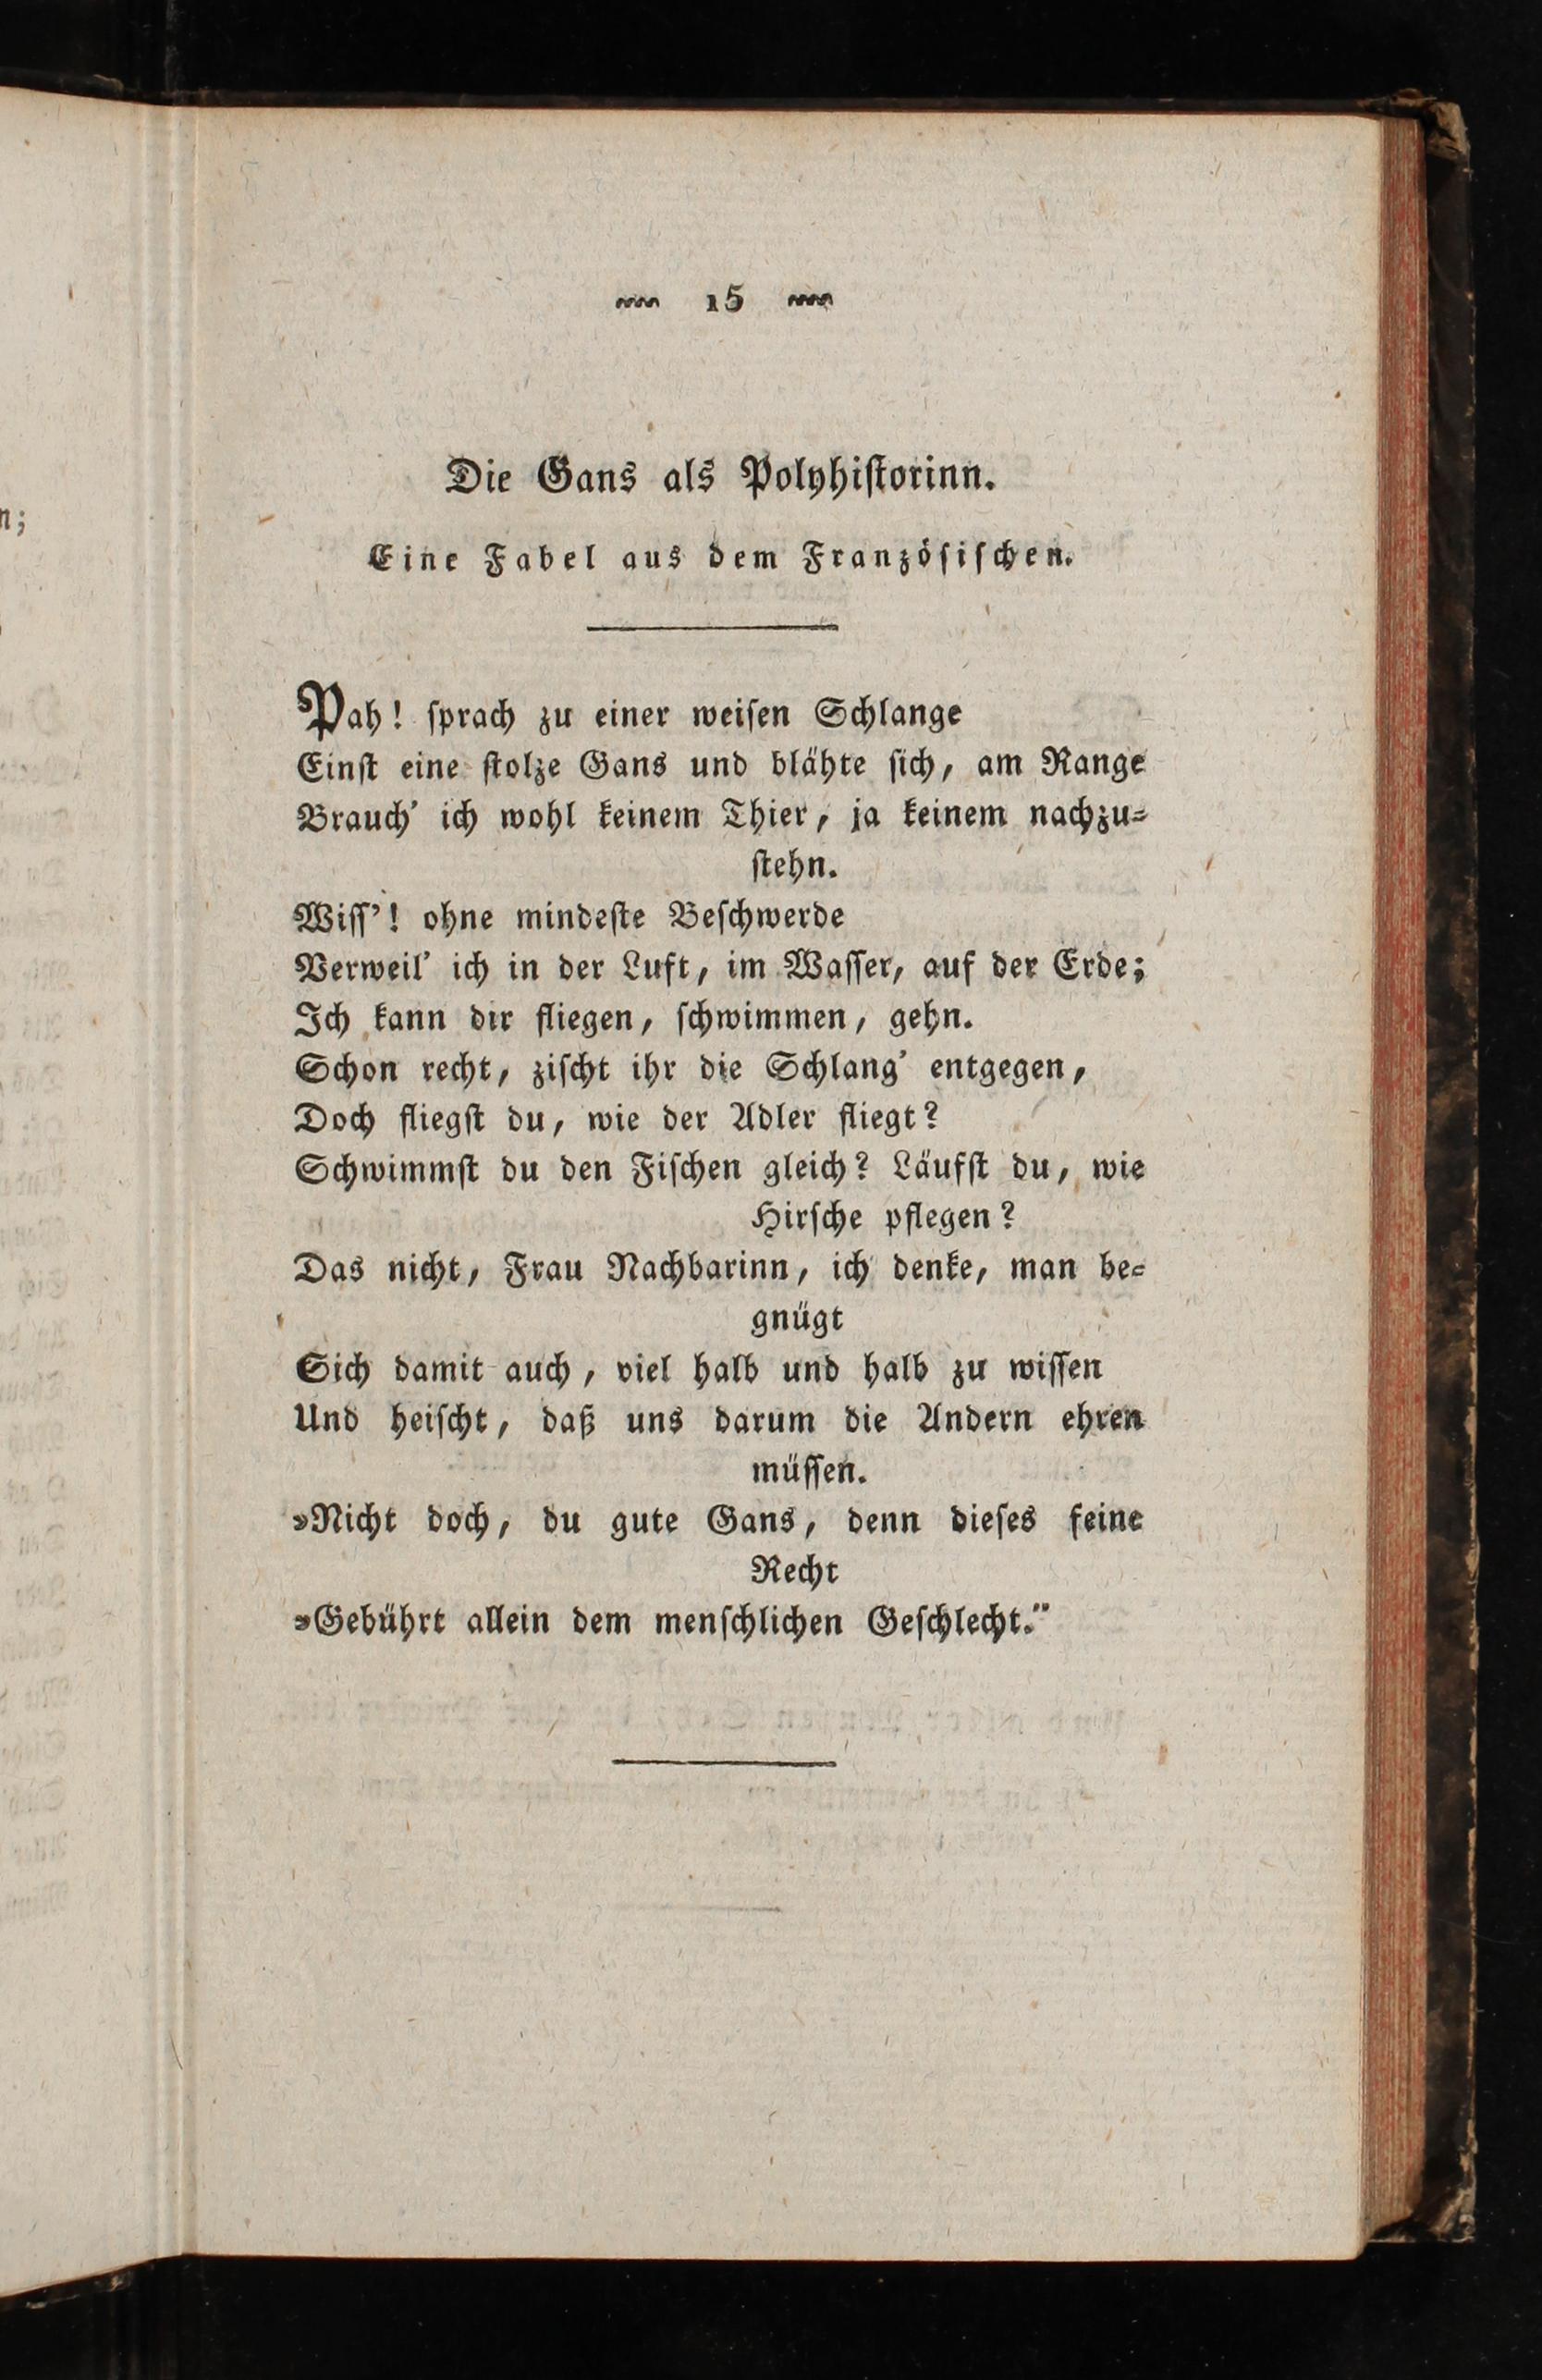 15
Die Gans als Polyhiſtorinn.
Eine Fabel aus dem Franzöſiſchen.
Pah! ſprach zu einer weiſen Schlange
Einſt eine ſtolze Gans und blähte ſich, am Range
Brauch' ich wohl keinem Thier, ja keinem nachzu⸗
ſtehn.
Wiſſ'! ohne mindeſte Beſchwerde
Verweil' ich in der Luft, im Waſſer, auf der Erde;
Ich kann dir fliegen, ſchwimmen, gehn.
Schon recht, ziſcht ihr die Schlang' entgegen,
Doch fliegſt du, wie der Adler fliegt?
Schwimmſt du den Fiſchen gleich? Läufſt du, wie
Hirſche pflegen?
Das nicht, Frau Nachbarinn, ich denke, man be⸗
gnügt
Sich damit auch, viel halb und halb zu wiſſen
Und heiſcht, daß uns darum die Andern ehren
müſſen.
»Nicht doch, du gute Gans, denn dieſes feine
Recht
»Gebührt allein dem menſchlichen Geſchlecht."